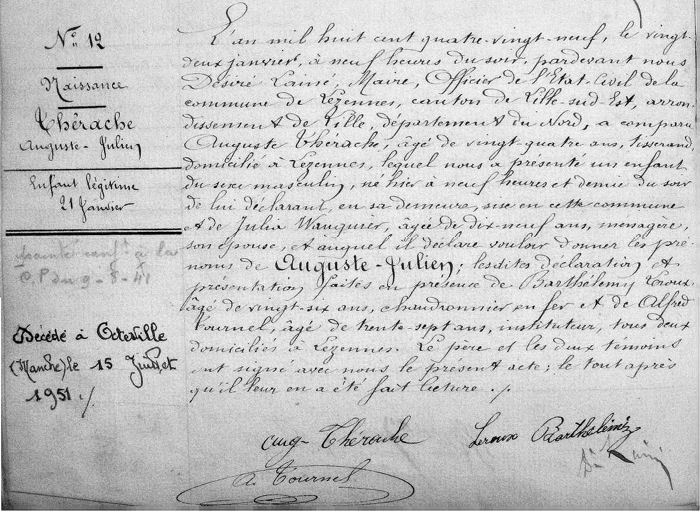 N° 12
Naissance
Thérache
Auguste-Julien
Enfant légitime
21 Janvier
à la
Décédé à Octeville
(Manche) le 15 Juillet
1951 ./
L'an mil huit cent quatre-vingt-neuf, le vingt-
deux janvier, à neuf heures du soir, pardevant nous
Désiré Lainé, Maire, Officier de l'Etat-Civil de la
commune de Lezennes, canton de Lille-sud-Est, arron
dissement de Lille, département du Nord, a comparu
Auguste Thérache, âgé de vingt-quatre ans, tisserand,
domicilié à Lezennes, lequel nous a présenté un enfant
du sexe masculin, né hier à neuf heures et demie du soir
de lui déclarant, en sa demeure, sise en cette commune
et de Julia Wauquier, âgée de dix-neuf ans, ménagère,
son épouse, et auquel il déclare vouloir donner les pré-
noms de Auguste-Julien; lesdites déclaration et
présentation faites en présence de Barthélemy Leroux
âgé de vingt-six ans, chaudronnier en fer et de Alfred
Tournel, âgé de trente-sept ans, instituteur, tous deux
domiciliés à Lezennes. Le père et les deux témoins
ont signé avec nous le présent acte; le tout après
qu'il leur en a été fait lecture ./
aug-Thérache
Leroux Barthélémy
A. Tournel